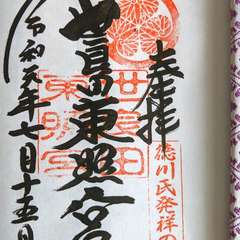 奉拝
徳川氏発祥の
世良田東照宮
世良田
東照宮
令和元年七月十五日